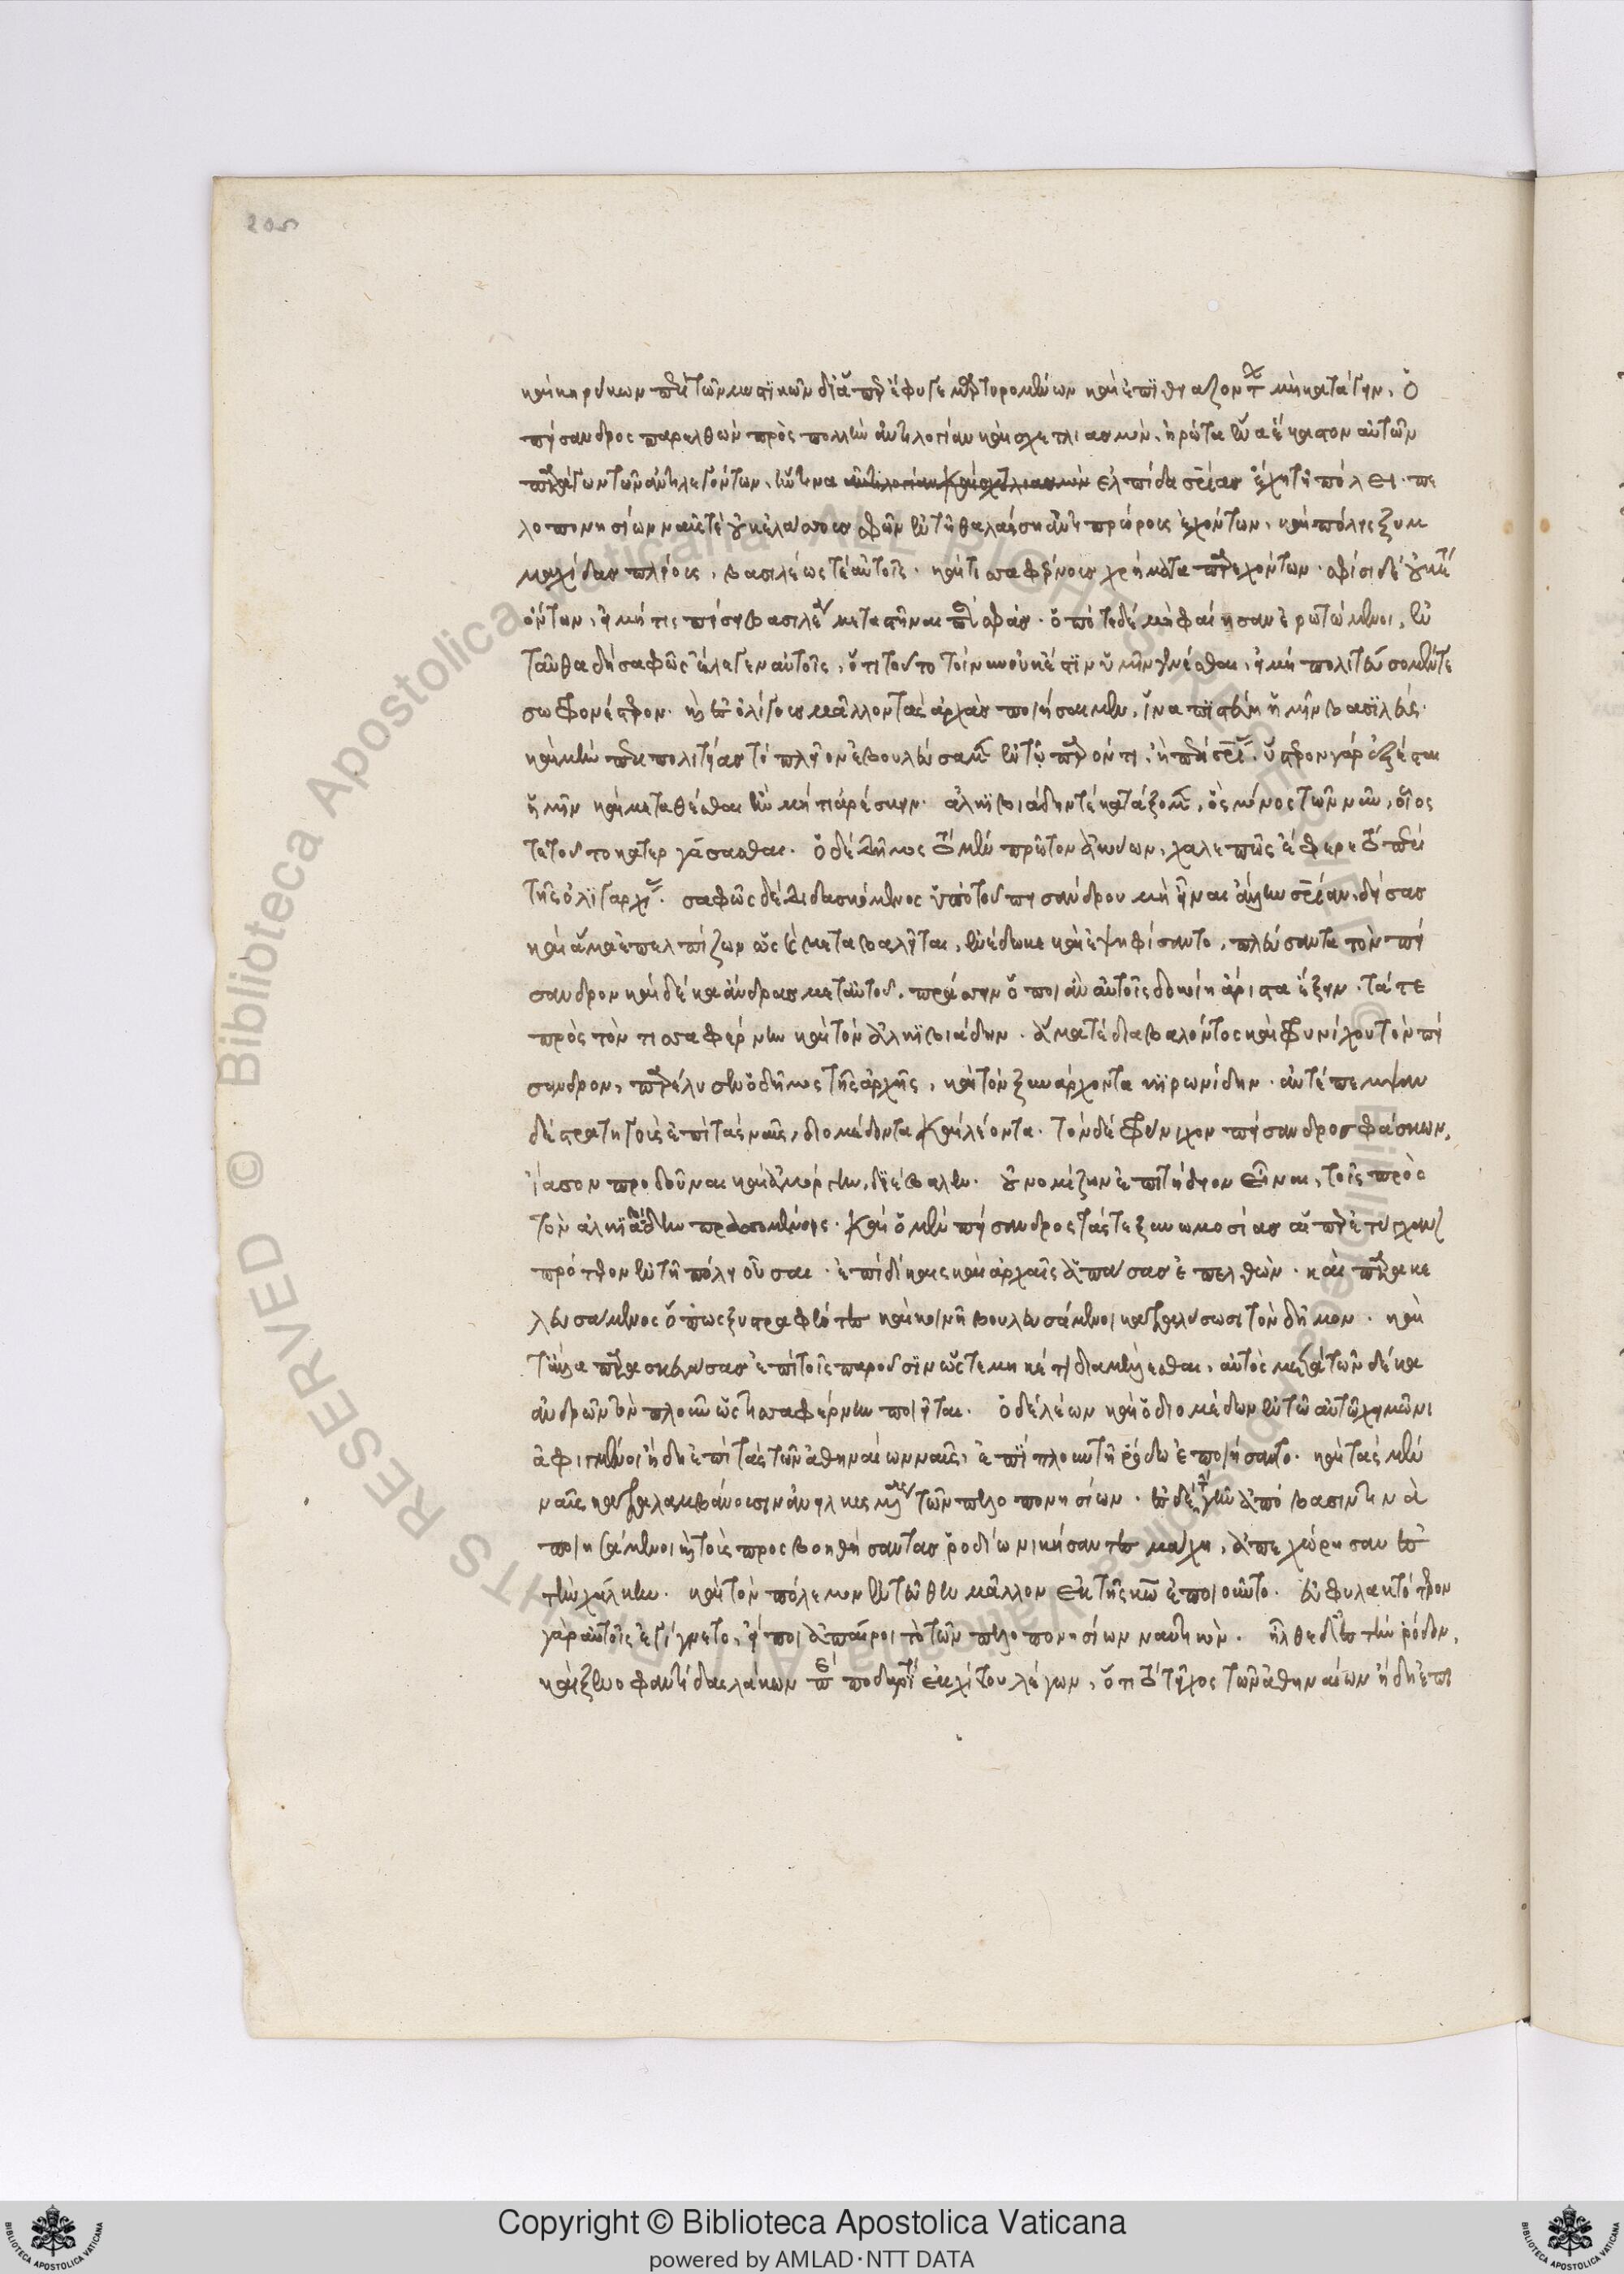 καὶ κηρύκων περὶ τῶν μυστικῶν δι' ἅπερ ἔφυγε μαρτυρομένων καὶ ἐπιθειαζόντων μὴ κατάγειν, ὁ
πείσανδρος παρελθὼν πρὸς πολλὴν ἀντιλογίαν καὶ σχετλιασμὸν, ἠρώτα ἕνα ἕκαστον αὐτῶν
παράγων τῶν ἀντιλεγόντων, εἴ τινα ἀντιλογίαν καὶ σχετλιασμὸν ἐλπίδα σωτηρίας ἔχει τῇ πόλει· πε
λοποννησίων ναῦς τε οὐκ ἐλάσσους σφῶν ἐν τῇ θαλάσσῃ ἀντιπρώρους ἐχόντων, καὶ πόλεις ξυμ
μαχίδας πλείους, βασιλέως τε αὐτοῖς καὶ τισσαφέρνους χρήματα παρεχόντων· σφίσι δὲ οὐκέτι
ὄντων, εἰ μή τις πείσει βασιλέα μεταστῆναι παρὰ σφᾶς· ὁπότε δὲ μὴ φαίησαν ἐρωτώμενοι, ἐν
ταῦθα δὴ σαφῶς ἔλεγεν αὐτοῖς, ὅτι τοῦτο τοίνυν οὐκ ἔστιν ἡμῖν γενέσθαι, εἰ μὴ πολιτεύσομέν τε
σωφρονέστερον· καὶ ἐς ὀλίγους μᾶλλον τὰς ἀρχὰς ποιήσομεν, ἵνα πιστεύῃ ἡμῖν βασιλεύς·
καὶ μὴ περὶ πολιτείας τὸ πλεῖον βουλεύσομεν ἐν τῷ παρόντι, ἢ περὶ σωτηρίας· ὕστερον γὰρ ἐξέσται
ἡμῖν καὶ μεταθέσθαι ἢν μή τι ἀρέσκῃ· ἀλκιβιάδην τε κατάξομεν, ὃς μόνος τῶν νῦν, οἷός
τε τοῦτο κατεργάσασθαι· ὁ δὲ δῆμος τὸ μὲν πρῶτον ἀκούων, χαλεπῶς ἔφερε τὸ περὶ
τῆς ὀλιγαρχίας· σαφῶς δὲ διδασκόμενος ὑπὸ τοῦ πεισάνδρου μὴ εἶναι ἄλλην σωτηρίαν, δείσας
καὶ ἅμα ἐπελπίζων ὡς καὶ μεταβαλεῖται, ἐνέδωκε καὶ ἐψηφίσαντο, πλεύσαντα τὸν πεί
σανδρον καὶ δέκα ἄνδρας μετ' αὐτοῦ, πράσσειν ὅποι ἂν αὐτοῖς δοκοίη ἄριστα ἕξειν· τά τε
πρὸς τὸν τισσαφέρνην καὶ τὸν ἀλκιβιάδην· ἅμα τε διαβαλόντος καὶ φρυνίχου τὸν πεί
σανδρον, παρέλυσεν ὁ δῆμος τῆς ἀρχῆς, καὶ τὸν ξυνάρχοντα σκιρωνίδην· ἀντέπεμψαν
δὲ στρατηγοὺς ἐπὶ τὰς ναῦς, διομέδοντα καὶ λέοντα· τὸν δὲ φρύνιχον πείσανδρος φάσκων,
ἴασον προδοῦναι καὶ ἀμόργην, διέβαλεν· οὐ νομίζων ἐπιτήδειον εἶναι, τοῖς πρὸς
τὸν ἀλκιβιάδην πρασσομένοις· καὶ ὁ μὲν πείσανδρος τάς τε ξυνωμοσίας αἵπερ ἐτύγχανον
πρότερον ἐν τῇ πόλει οὖσαι ἐπὶ δίκαις καὶ ἀρχαῖς ἁπάσας ἐπελθὼν· καὶ παρακε
λευσάμενος ὅπως ξυστραφέντες καὶ κοινῇ βουλευσάμενοι καταλύσωσι τὸν δῆμον· καὶ
τἆλλα παρασκευάσας ἐπὶ τοῖς παροῦσιν ὥστε μηκέτι διαμέλλεσθαι, αὐτὸς μετὰ τῶν δέκα
ἀνδρῶν τὸν πλοῦν ὡς τισσαφέρνην ποιεῖται· ὁ δὲ λέων καὶ ὁ διομέδων ἐν τῷ αὐτῷ χειμῶνι
ἀφιγμένοι ἤδη ἐπὶ τὰς τῶν ἀθηναίων ναῦς, ἐπίπλουν τῇ ῥόδῳ ἐποιήσαντο· καὶ τὰς μὲν
ναῦς καταλαμβάνουσιν ἀνειλκυσμένας τῶν πελοποννησίων· ἐς δὲ τὴν γῆν ἀπόβασίν τινα
ποιησάμενοι καὶ τοὺς προσβοηθήσαντας ῥοδίων νικήσαντες μάχῃ, ἀπεχώρησαν ἐς
τὴν χάλκην· καὶ τὸν πόλεμον ἐντεῦθεν μᾶλλον ἐκ τῆς κῶ ἐποιοῦντο· εὐφυλακτότερον
γὰρ αὐτοῖς ἐγίγνετο, εἴ ποι ἀπαίροι τὸ τῶν πελοποννησίων ναυτικὸν· ἦλθε δ' ἐς τὴν ῥόδον,
καὶ ξενοφαντίδας λάκων παρὰ πεδαρίτου ἐκ χίου λέγων, ὅτι τὸ τεῖχος τῶν ἀθηναίων ἤδη ἐπι